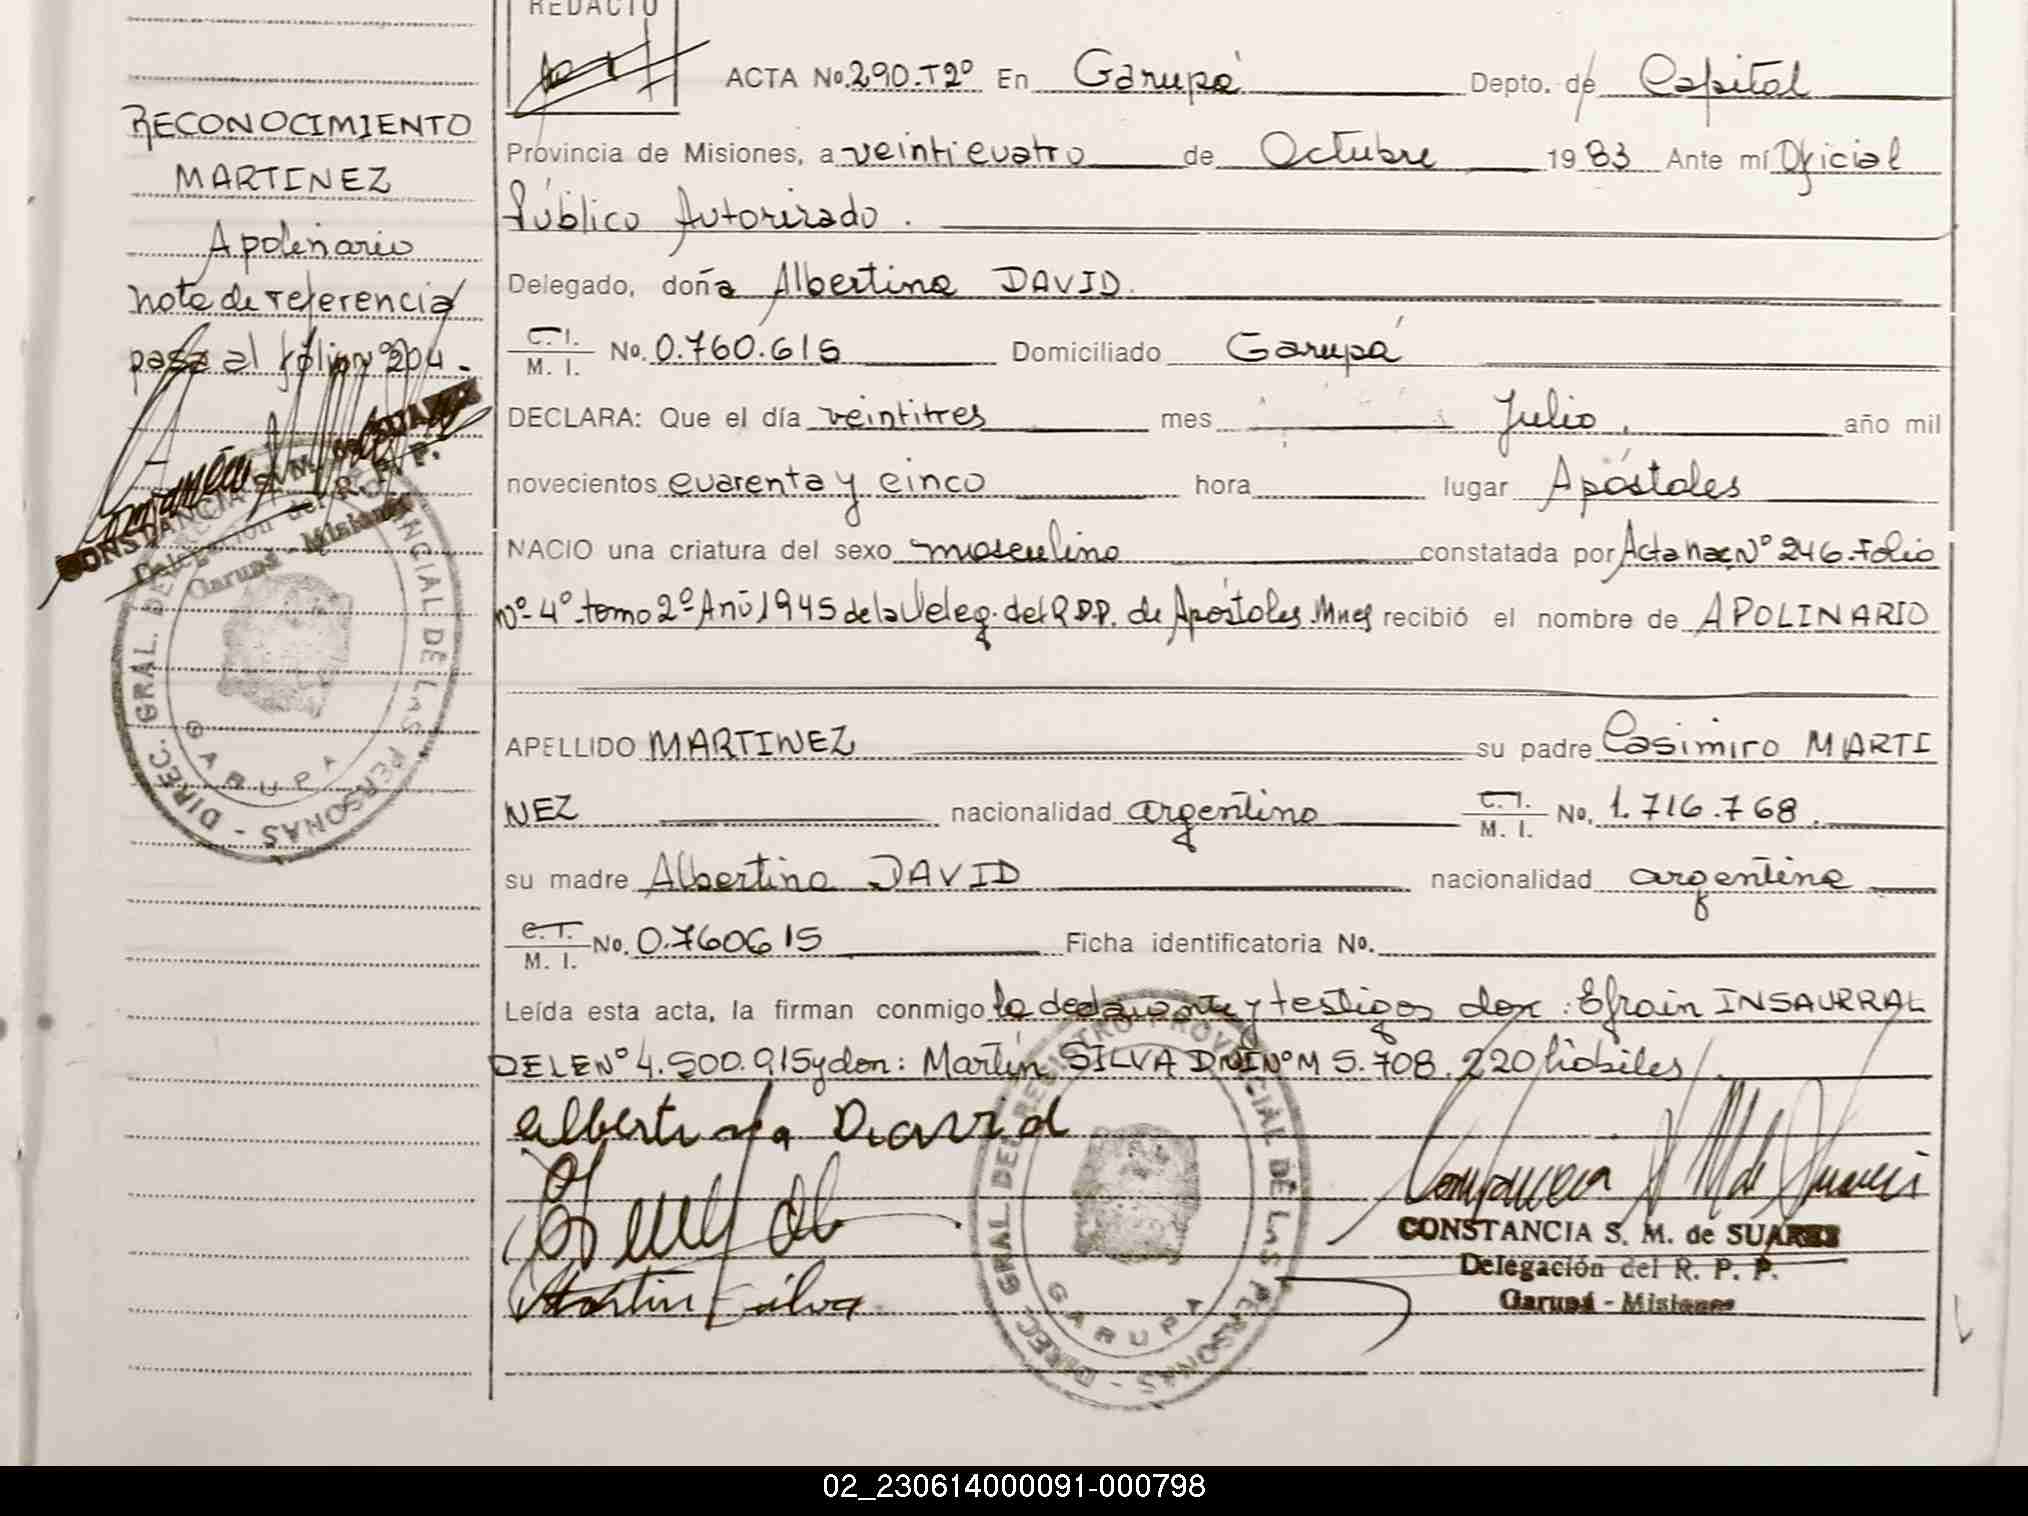 REDACTO
ACTA No. 290-T2º En Garupá Depto. de Capital
RECONOCIMIENTO
MARTINEZ
Apolinario
nota de referencia
pasa al fólio nº 204.
Provincia de Misiones, a veinticuatro de Octubre 1983 Ante mí Oficial
Público Autorizado.
Delegado, doña Albertina DAVID.
C. I. / M. I. No. 0.760.615 Domiciliado Garupá
DECLARA: Que el día veintitres mes Julio, año mil
novecientos cuarenta y cinco hora lugar Apóstoles
NACIO una criatura del sexo masculino constatada por Acta Nac Nº 246-Folio
Nº 4º-tomo 2º Año 1945 de la Deleg. del R.P.P. de Apóstoles Mnes recibió el nombre de APOLINARIO
APELLIDO MARTINEZ su padre Casimiro MARTI
NEZ nacionalidad argentino C. I. / M. I. No. 1.716.768.
su madre Albertina DAVID nacionalidad argentina
C. I. / M. I. No. 0.760615 Ficha identificatoria No.
Leída esta acta, la firman conmigo la declarante y testigos don: Efrain INSAURRAL
DE LE Nº 4.500.915 y don: Martín SILVA DNI Nº M 5.708.220 hábiles.
Albertina David
Martin Silva
CONSTANCIA S. M. de SUAREZ
Delegación del R. P. P.
Garupá - Misiones
CONSTANCIA S. M. de SUAREZ
Delegación del R. P. P.
Garupá - Misiones
DIREC. GRAL. DEL REGISTRO PROVINCIAL DE LAS PERSONAS -
GARUPA
DIREC. GRAL. DEL REGISTRO PROVINCIAL DE LAS PERSONAS -
GARUPA
02_230614000091-000798